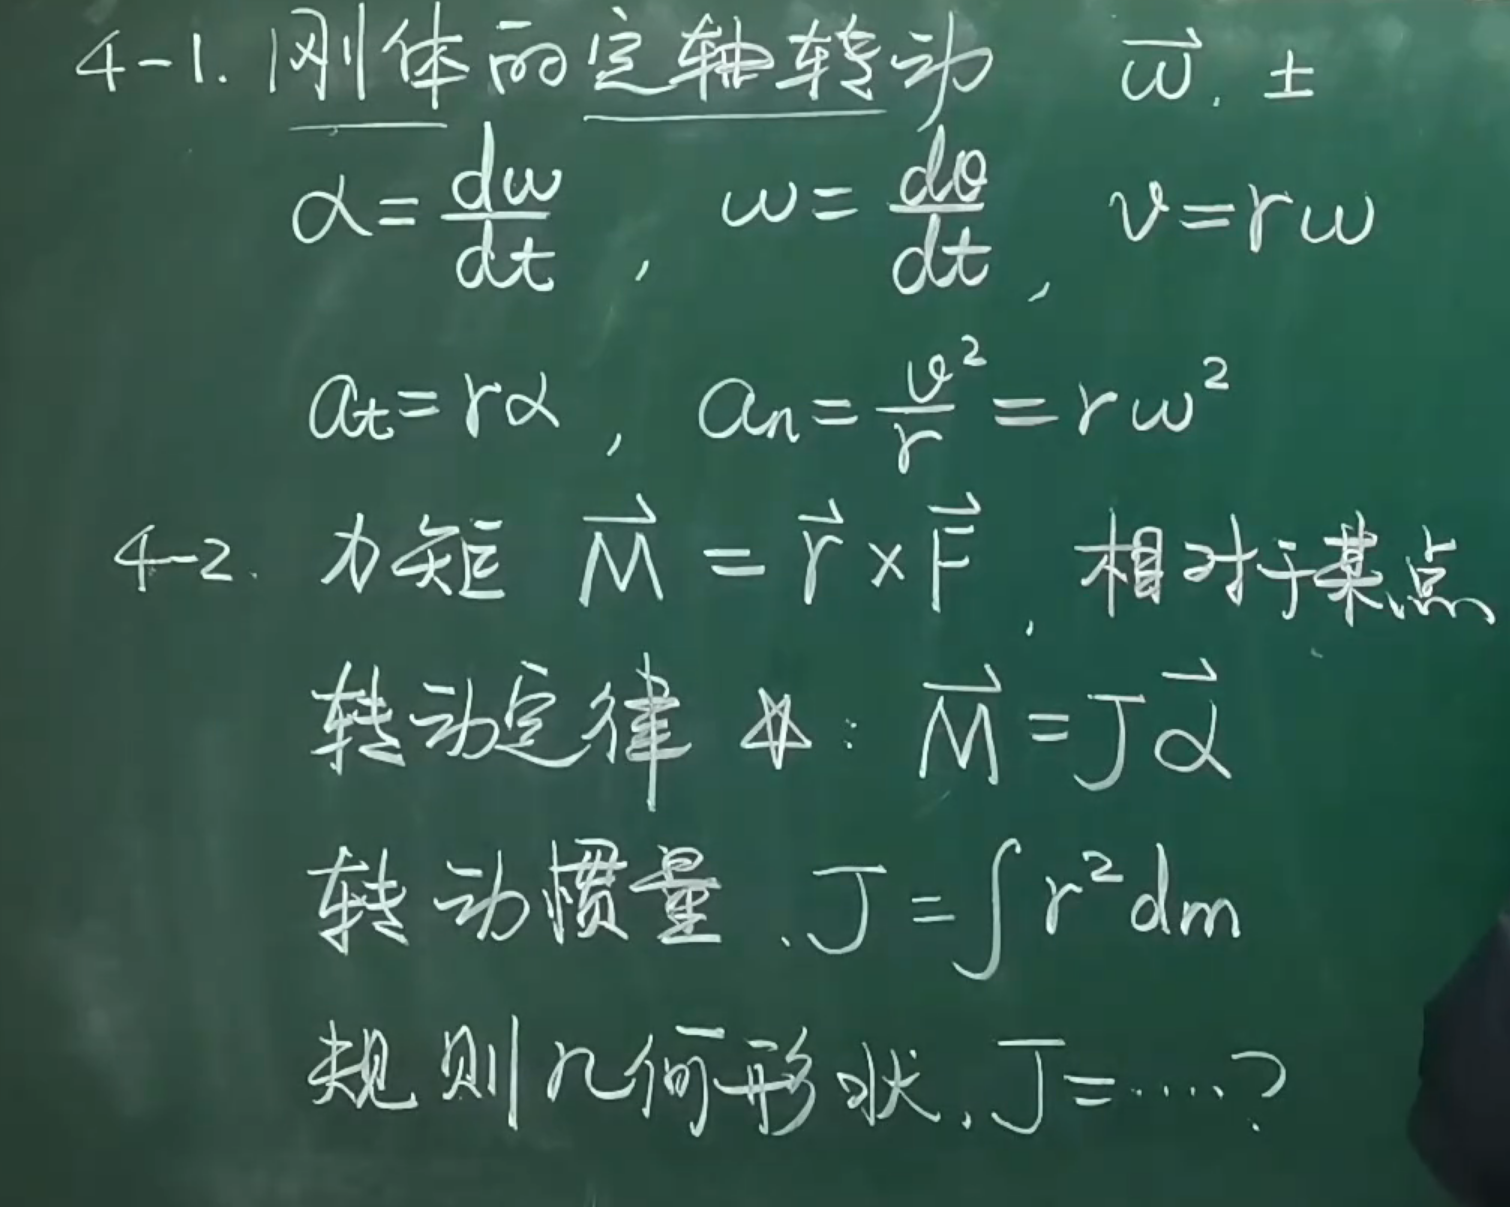 4-1. 刚体的定轴转动 $\vec{\omega}$. ±
$\alpha=\frac{d\omega}{dt}$, $\omega=\frac{d\theta}{dt}$, $v=r\omega$
$a_t=r\alpha$, $a_n=\frac{v^2}{r}=r\omega^2$
4-2. 力矩 $\vec{M}=\vec{r}\times\vec{F}$, 相对于某点
转动定律 ☆: $\vec{M}=J\vec{\alpha}$
转动惯量. $J=\int r^2dm$
规则几何形状. J=.....?